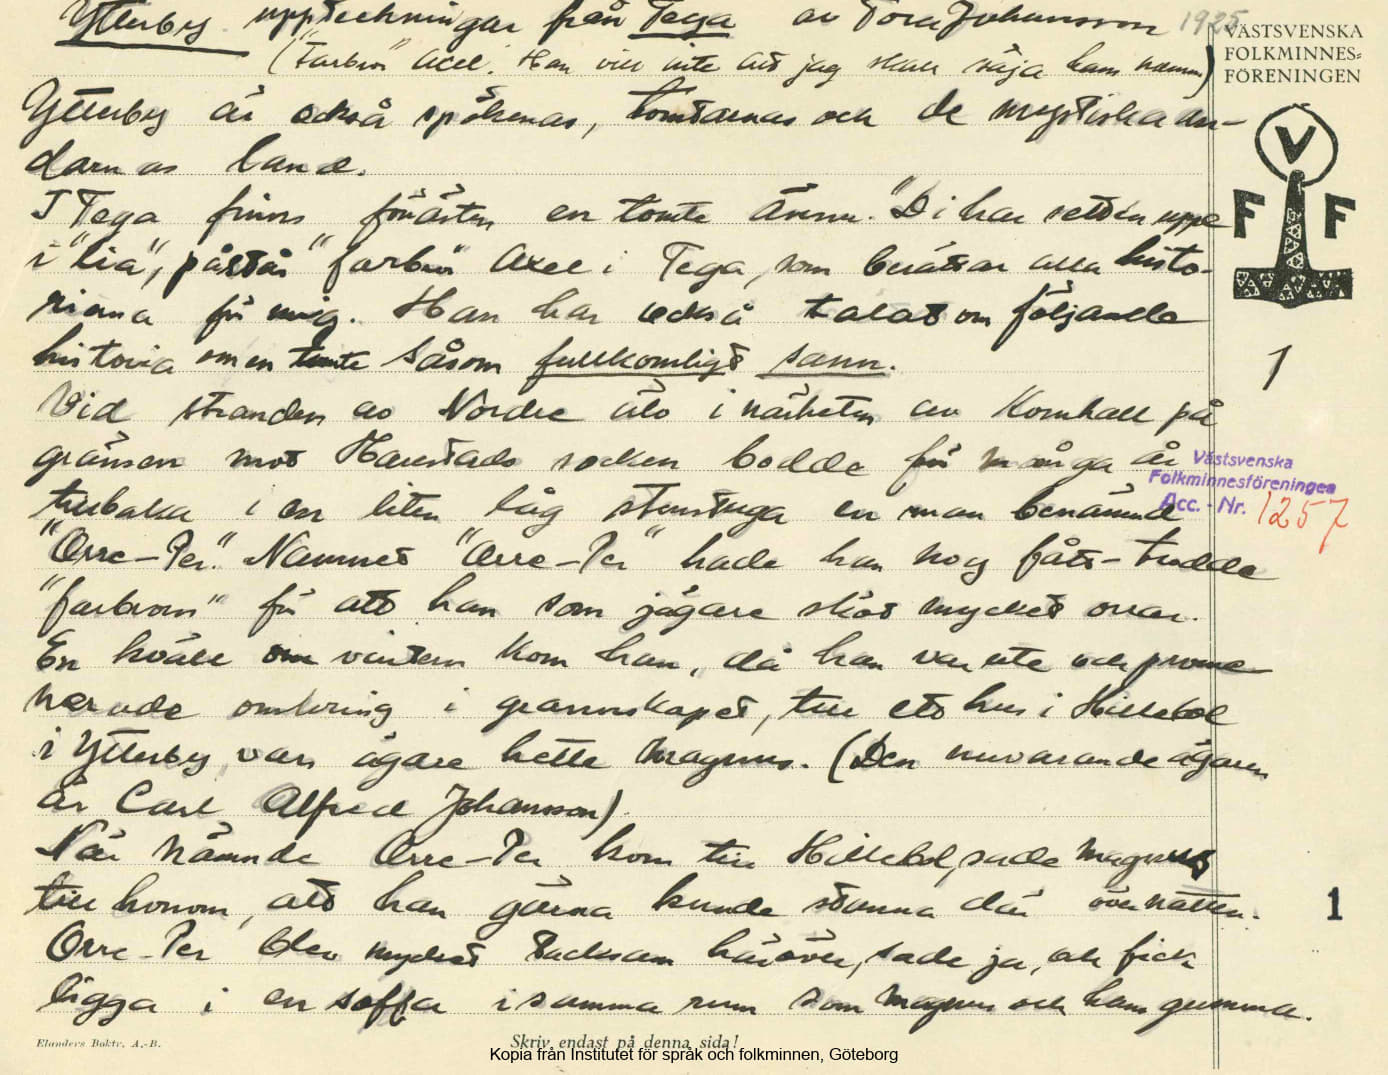 Ytterby uppteckningar från Tega av Tore Johansson 1925
("Farbror" Axel. Han vill inte att jag skall säja hans namn)
VÄSTSVENSKA
FOLKMINNES=
FÖRENINGEN
Ytterby är också spökenas, tomtarnas och de mystiska an-
darnas land.
I Tega finns förresten en tomte ännu. "Di har sett'en uppe
i "lia", påstår "farbror" Axel i Tega, som berättar alla histo-
riorna för mig. Han har också talat om följande
historia om en tomte såsom fullkomligt sann.
Vid stranden av Nordre älv i närheten av Kornhall på
gränsen mot Harestads socken bodde för många år
tillbaka i en liten låg stenstuga en man benämnd
"Orre-Per". Namnet "Orre-Per" hade han nog fått - trodde
"farbrorn" för att han som jägare sköt mycket orrar.
En kväll om vintern kom han, då han var ute och prome-
nerade omkring i grannskapet, till ett hus i Hillebol
i Ytterby, vars ägare hette Magnus. (Den nuvarande ägaren
är Carl Alfred Johansson).
När nämnde Orre-Per kom till Hillebol, sade Magnus
till honom, att han gärna kunde stanna där över natten.
Orre-Per blev mycket tacksam häröver, sade ja, och fick
ligga i en soffa i samma rum som Magnus och hans gumma.
V
F F
1
Västsvenska
Folkminnesföreningen
Acc. - Nr. 1257
1
Elanders Boktr. A.-B.
Skriv endast på denna sida!
Kopia från Institutet för språk och folkminnen, Göteborg